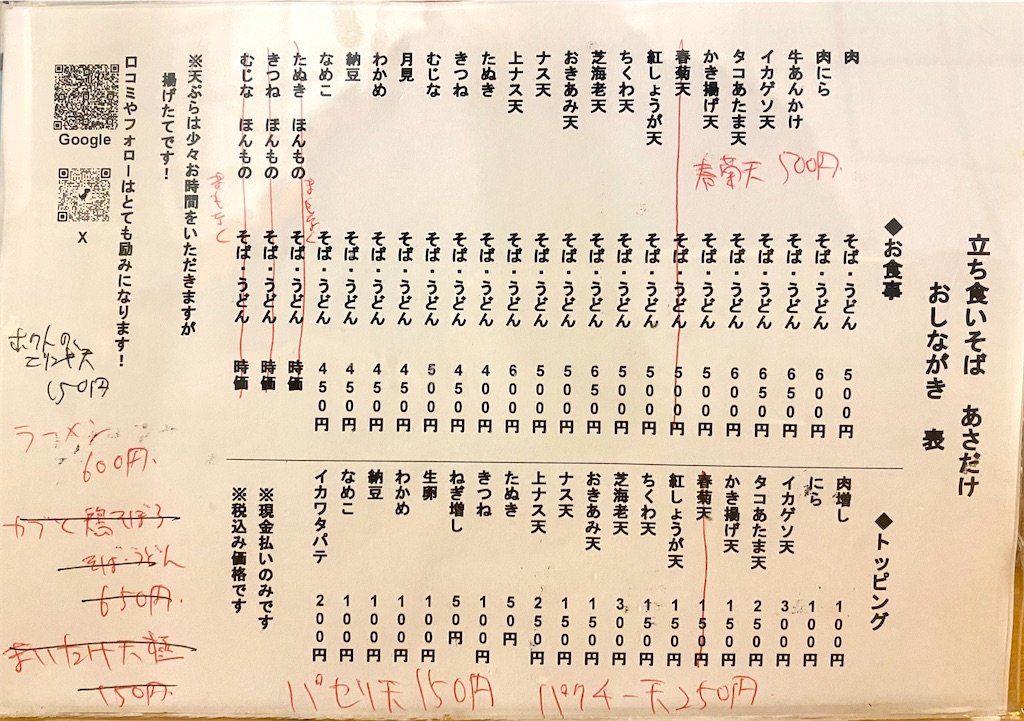 立ち食いそば あさだけ
おしながき 表
◆お食事
肉 そば・うどん 500円
肉にら そば・うどん 600円
牛あんかけ そば・うどん 650円
イカゲソ天 そば・うどん 650円
タコあたま天 そば・うどん 600円
かき揚げ天 そば・うどん 500円
春菊天 そば・うどん 500円
紅しょうが天 そば・うどん 500円
ちくわ天 そば・うどん 500円
芝海老天 そば・うどん 650円
おきあみ天 そば・うどん 500円
ナス天 そば・うどん 500円
上ナス天 そば・うどん 600円
たぬき そば・うどん 400円
きつね そば・うどん 450円
むじな そば・うどん 500円
月見 そば・うどん 450円
わかめ そば・うどん 450円
納豆 そば・うどん 450円
なめこ そば・うどん 450円
たぬき ほんもの そば・うどん 時価
きつね ほんもの そば・うどん 時価
むじな ほんもの そば・うどん 時価
まもなく
まもなく
春菊天 500円
※天ぷらは少々お時間をいただきますが
揚げたてです！
口コミやフォローはとても励みになります！
Google
X
◆トッピング
肉増し 100円
にら 100円
イカゲソ天 300円
タコあたま天 250円
かき揚げ天 150円
春菊天 150円
紅しょうが天 150円
ちくわ天 150円
芝海老天 300円
おきあみ天 150円
ナス天 150円
上ナス天 250円
たぬき 50円
きつね 100円
ねぎ増し 50円
生卵 100円
わかめ 100円
納豆 100円
なめこ 100円
イカワタパテ 200円
※現金払いのみです
※税込み価格です
ホクトの
エリンギ天
150円
ラーメン
600円
カブと鶏そぼろ
そば・うどん
650円
まいたけ天
150円
パセリ天150円
パクチー天250円